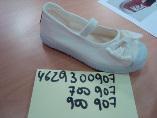 4629300907
700 907
900 907